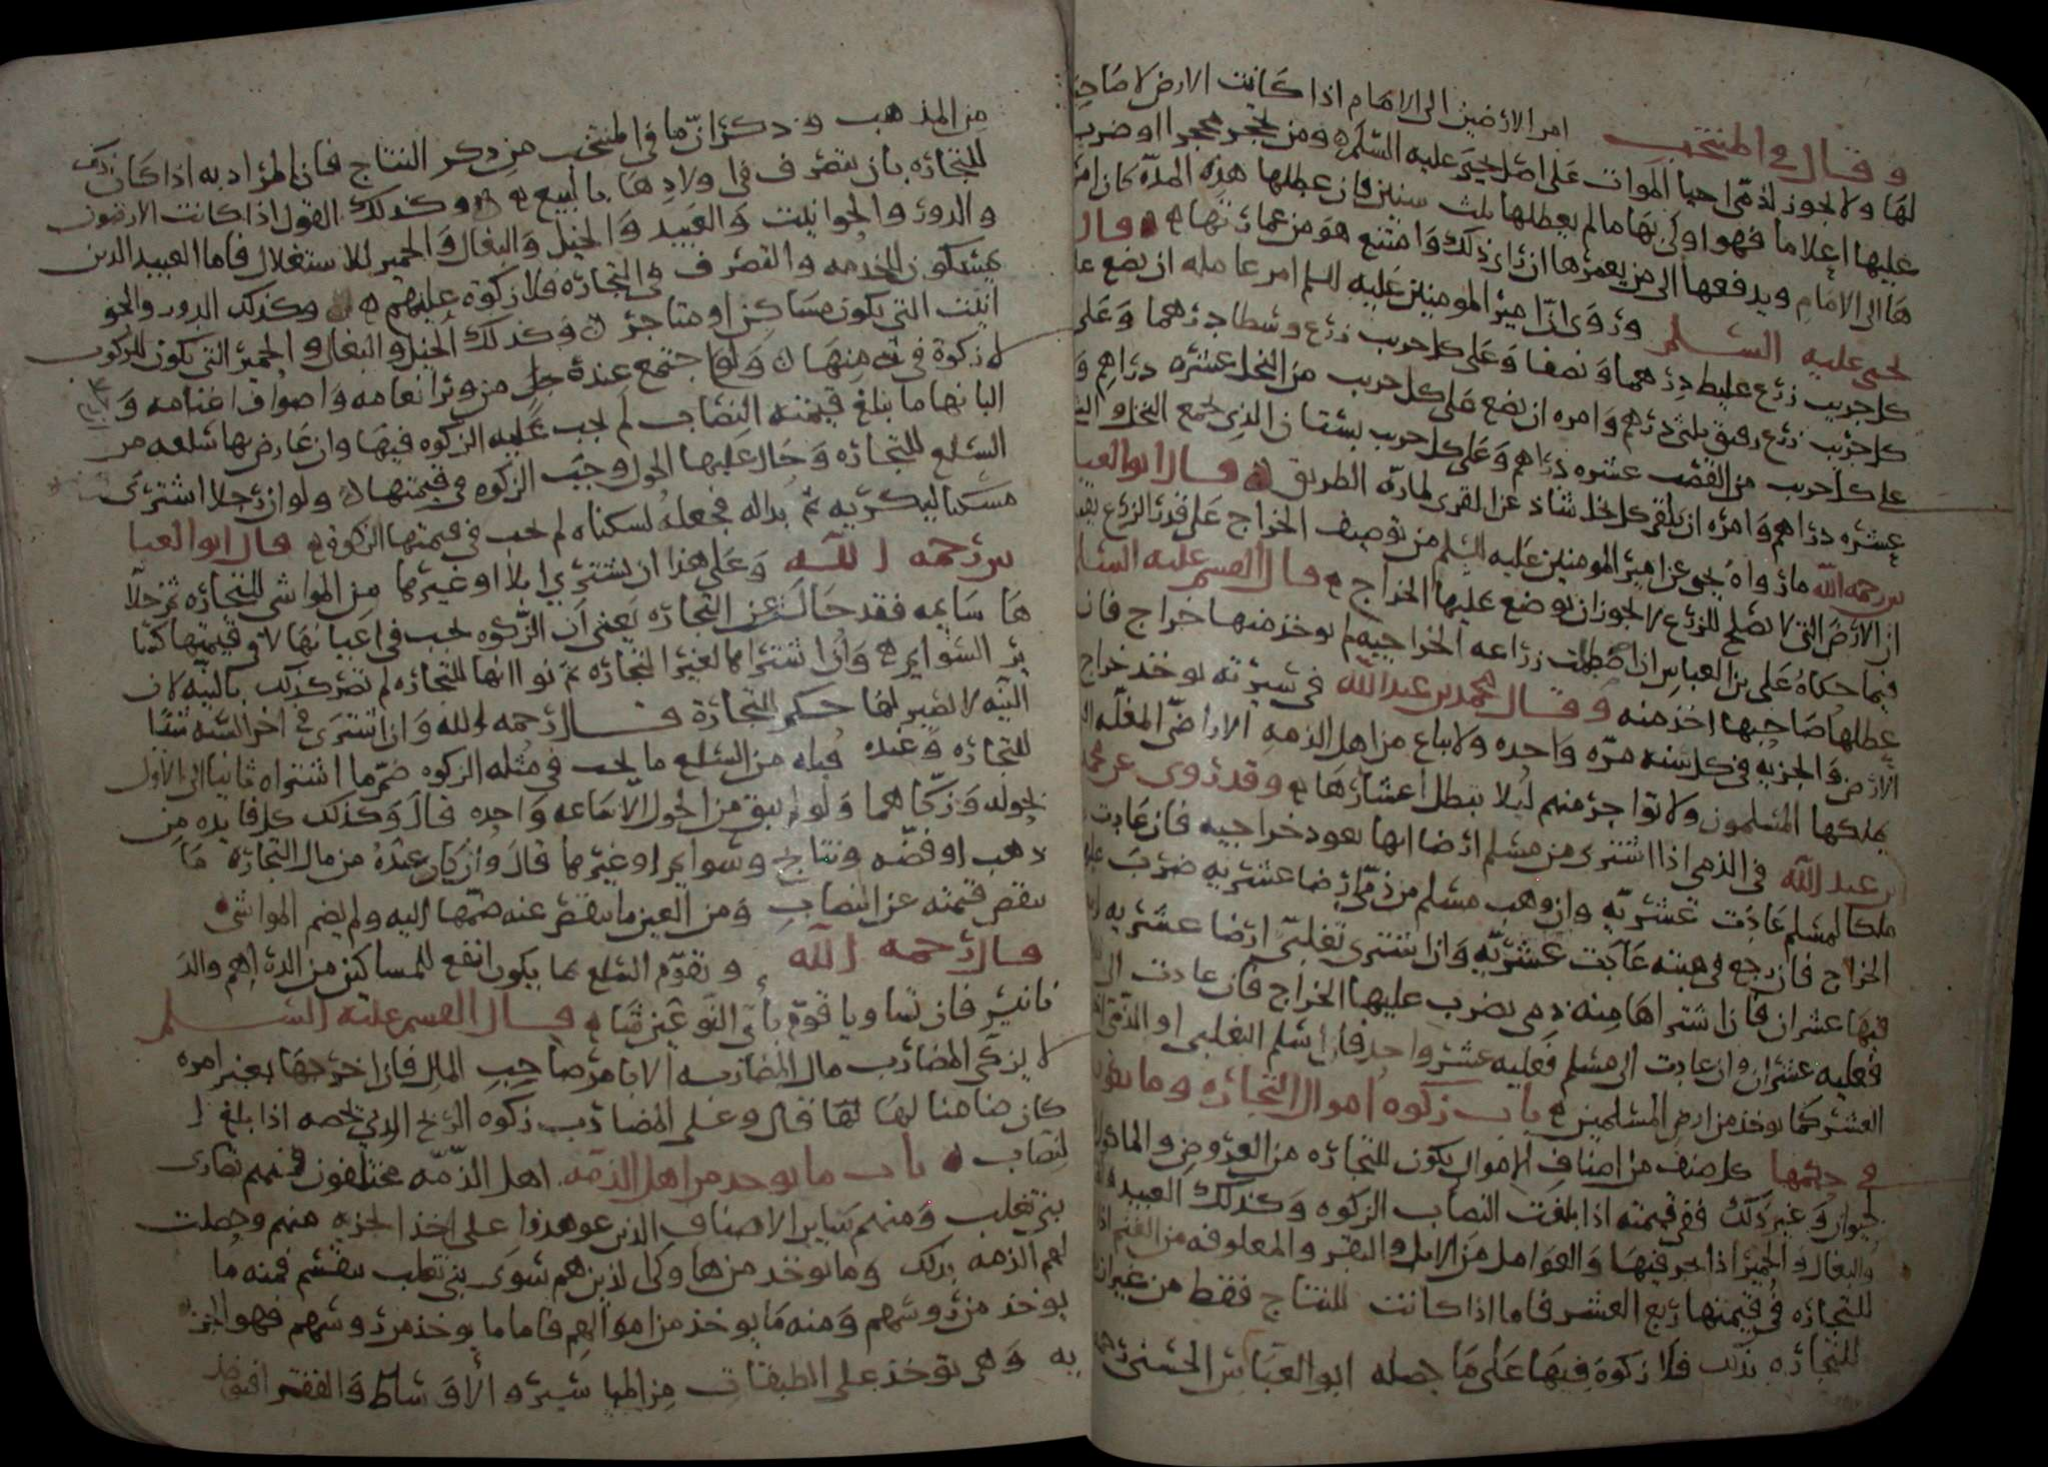 امر الأرضين الى الامام اذا كانت الارض لا صاحب
لها ولا يجوز لذمي احيا الموات على اصل يحيى عليه السلم ومن تحجر محجرا او ضرب
وقال في المنتخب
عليها اعلاما فهو اولى بها ما لم يعطلها ثلث سنين فان عطلها هذه المدة كان امر
ها الى الامام ويدفعها الى من يعمرها ان راى ذلك وامتنع هو من عمارتها قال
يحيى عليه السلم وروى ان امير المومنين عليه السلم امر عامله ان يضع على
كل جريب زرع غليظ درهما ونصفا وعلى كل جريب زرع وسط درهما وعلى
كل جريب زرع رقيق ثلثى درهم وامره ان يضع على كل جريب من النخل عشره دراهم و
على كل جريب من القصب عشره دراهم وعلى كل جريب بستان الذي يجمع النخل والشجر
عشره دراهم وامره ان يلقى كل نخل شاذ عن القرى لمارة الطريق قال ابو العبا
س رحمه الله ما رواه يحيى عن امير المومنين عليه السلم من توصيف الخراج على قدر الزرع
ان الأرض التي لا تصلح للزرع لا يجوز ان يوضع عليها الخراج قال القسم عليه السلم
فيما حكاه على بن العباس اذا عطلت زراعه الخراجيه لم يوخذ منها خراج فان
عطلها صاحبها اخذ منه وقال محمد بن عبد الله في سيرته يوخذ خراج
الأرض والجزيه في كل سنه مره واحده ولا يباع من اهل الذمه الاراضى المغله
يملكها المسلمون ولا تواجر منهم ليلا تبطل اعشارها وقد روى عن محمد
بن عبد الله في الذمي اذا اشترى من مسلم ارضا انها تعود خراجيه فان عادت
ملكا لمسلم عادت عشريه وان وهب مسلم من ذمي ارضا عشريه ضرب عليها
الخراج فان رجع في هبته عادت عشريه وان اشترى تغلبي ارضا عشريه
فيها عشران فان اشتراها منه ذمى يضرب عليها الخراج فان عادت الى
فعليه عشران وان عادت الى مسلم فعليه عشر واحد فان اسلم التغلبى او الذمي
العشر كما يوخذ من ارض المسلمين باب زكوه اموال التجاره وما
في حكمها كل صنف من اصناف الاموال يكون للتجاره من العروض و
الحيوان وغير ذلك ففى قيمته اذا بلغت النصاب الزكوه وكذلك العبيد
والبغال والحمير اذا اتجر فيها والعوامل من الابل والبقر والمعلوفه من الغنم اذا
للتجاره في قيمتها ربع العشر فاما اذا كانت للنتاج فقط من غير
للتجاره بذلك فلا زكوة فيها على ما حصله ابو العباس الحسنى رحمه
من المذهب وذكر ان ما في المنتخب من ذكر النتاج فان المراد به اذا كان ذلك
للتجاره بان يتصرف في اولادها بالبيع وكذلك القول اذا كانت الارضون
والدور والحوانيت والعبيد والخيل والبغال والحمير للاستغلال فاما العبيد الذين
يمسكون للخدمه والتصرف في التجاره فلا زكوة عليهم وكذلك الدور والحو
انيت التي يكون مساكن او متاجر وكذلك الخيل والبغال والحمير التي يكون للركوب
لا زكوة في شي منها ولو اجتمع عنده رجل من وبر انعامه واصواف اغنامه و
البانها ما يبلغ قيمته النصاب لم يجب عليه الزكوه فيها وان عارض بها سلعه من
السلع للتجاره وحال عليها الحول وجبت الزكوه في قيمتها ولو ان رجلا اشترى
مسكنا ليكريه ثم بدا له فجعله لسكناه لم يجب في قيمتها الزكوة قال ابو العبا
س رحمه الله وعلى هذا ان يشتري ابلا او غيرها من المواشى للتجاره ثم جعلا
ها سايمه فقد حالت عن التجاره يعنى ان الزكوه يجب في اعيانها لا في قيمتها كسا
ير السوايم وان اشتراها لغير التجاره ثم نوا انها للتجاره لم تصر كذلك بالنيه لان
النيه لا تصير لها حكم التجارة قال رحمه الله وان اشترى في اخر السنه شيئا
للتجاره وعنده قبله من السلع ما يجب في مثله الزكوه ضم ما اشتراه ثانيا الى الأول
بحوله وزكاهما ولو لم يبق من الحول الا ساعه واحده قال وكذلك كل فايده من
ذهب او فضه ونتاج وسوايم او غيرها قال وان كان عنده من مال التجاره ما
ينقص قيمته عن النصاب ومن العين ما ينقص عنه ضمها اليه ولم يضم المواشى
قال رحمه الله وتقوم السلع بما يكون انفع للمساكين من الدراهم والد
نانير فان تساويا قوم باي النوعين شا قال القسم عليه السلم
لا يزكى المضارب مال المضاربه الا بامر صاحب المال فان اخرجها بغير امره
كان ضامنا لها قال وعلى المضارب زكوه الربح الذي يخصه اذا بلغ ا
لنصاب باب ما يوخذ من اهل الذمه اهل الذمه مختلفون فمنهم نصارى
بنى تغلب ومنهم ساير الاصناف الذين عوهدوا على اخذ الجزيه منهم وجعلت
لهم الذمه بذلك وما يوخذ من هاولى الذين هم سوى بنى تغلب ينقسم فمنه ما
يوخذ من روسهم ومنه ما يوخذ من اموالهم فاما ما يوخذ من روسهم فهو الجز
يه وهى توخذ على الطبقات من المياسير والأوساط والفقر